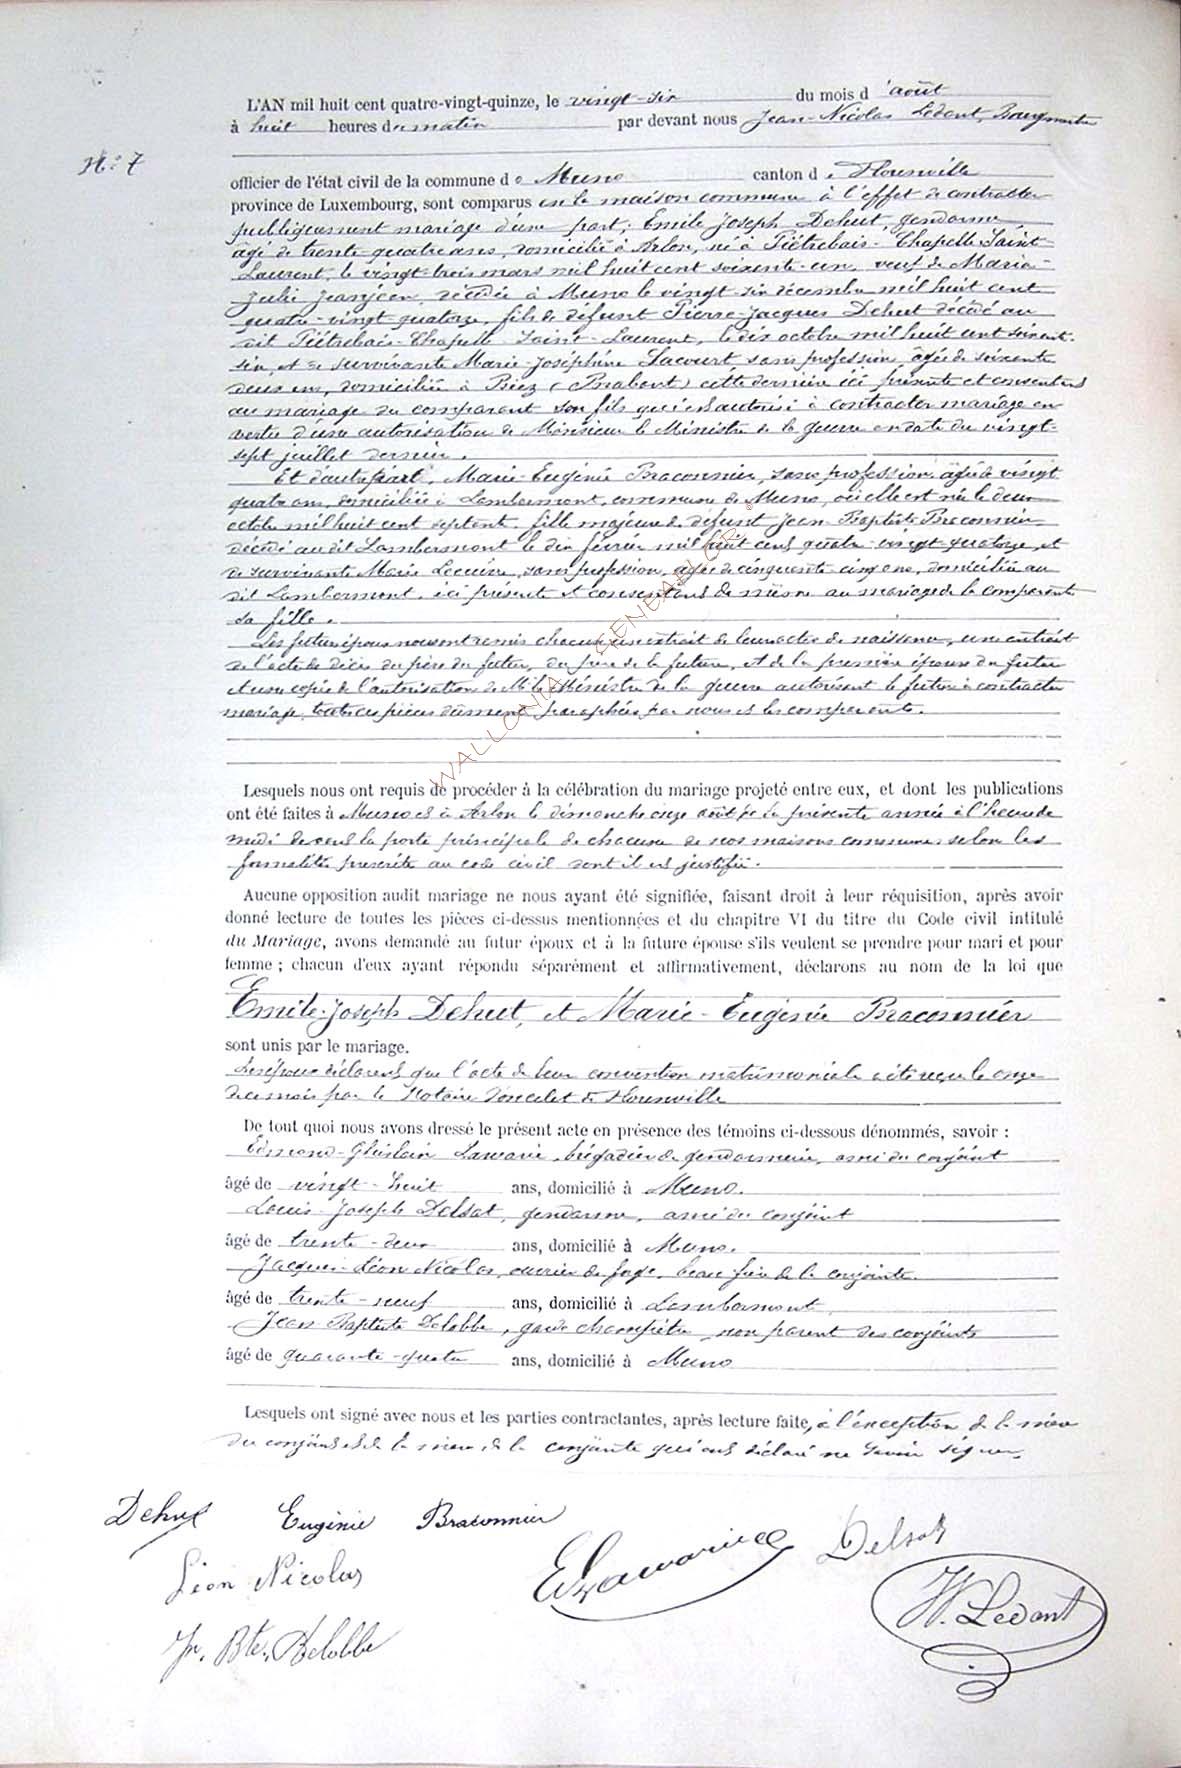 L'AN mil huit cent quatre-vingt-quinze, le vingt-six du mois d'août
à huit heures du matin par devant nous Jean-Nicolas Ledant, Bourgmestre
N° 7
officier de l'état civil de la commune de Muno canton de Florenville
province de Luxembourg, sont comparus en la maison commune à l'effet de contracter
publiquement mariage d'une part, Emile Joseph Dehut, gendarme
âgé de trente quatre ans, domicilié à Arlon, né à Piétrebais-Chapelle-Saint-
Laurent, le vingt-trois mars mil huit cent soixante-un, veuf de Maria-
Julie Jeanjean, décédée à Muno le vingt-six décembre mil huit cent
quatre-vingt quatorze, fils de défunt Pierre-Jacques Dehut décédé au
dit Piétrebais-Chapelle-Saint-Laurent, le dix octobre mil huit cent soixante-
six, et de survivante Marie-Joséphine Lacourt, sans profession, âgée de soixante
deux ans, domiciliée à Biez (Brabant) cette dernière ici présente et consentant
au mariage du comparant son fils qui est autorisé à contracter mariage en
vertu d'une autorisation de Monsieur le Ministre de la guerre en date du vingt-
sept juillet dernier.
Et d'autre part, Marie-Eugénie Braconnier, sans profession, âgée de vingt
quatre ans, domiciliée à Lambermont, commune de Muno, où elle est née le deux
octobre mil huit cent septante, fille majeure de défunt Jean-Baptiste Braconnier
décédé au dit Lambermont le dix février mil huit cent quatre-vingt-quatorze, et
de survivante Marie Lecuire, sans profession, âgée de cinquante-cinq ans, domiciliée au
dit Lambermont, ici présente et consentant de même au mariage de la comparante
sa fille.
Les futurs époux nous ont remis chacun un extrait de leur acte de naissance, un extrait
de l'acte de décès du père du futur, du père de la future, et de la première épouse du futur
et une copie de l'autorisation de M. le Ministre de la guerre autorisant le futur à contracter
mariage, toutes ces pièces dûment paraphées par nous et les comparants.
WALLONIA GENEABLOR
Lesquels nous ont requis de procéder à la célébration du mariage projeté entre eux, et dont les publications
ont été faites à Muno et à Arlon le dimanche onze août de la présente année à l'heure de
midi devant la porte principale de chacune de nos maisons communes selon les
formalités prescrites au code civil dont il est justifié.
Aucune opposition audit mariage ne nous ayant été signifiée, faisant droit à leur réquisition, après avoir
donné lecture de toutes les pièces ci-dessus mentionnées et du chapitre VI du titre du Code civil intitulé
du Mariage, avons demandé au futur époux et à la future épouse s'ils veulent se prendre pour mari et pour
femme ; chacun d'eux ayant répondu séparément et affirmativement, déclarons au nom de la loi que
Emile-Joseph Dehut, et Marie-Eugénie Braconnier
sont unis par le mariage.
Les époux déclarent que l'acte de leur convention matrimoniale a été reçu le onze
de ce mois par le Notaire Poncelet de Florenville
De tout quoi nous avons dressé le présent acte en présence des témoins ci-dessous dénommés, savoir :
Edmond-Ghislain Lawarie, brigadier de gendarmerie, ami du conjoint
âgé de vingt-huit ans, domicilié à Muno.
Louis-Joseph Delsat, gendarme, ami du conjoint
âgé de trente-deux ans, domicilié à Muno.
Jacques-Léon Nicolas, ouvrier de forge, beau-frère de la conjointe
âgé de trente-neuf ans, domicilié à Lambermont
Jean Baptiste Delobbe, garde champêtre, non parent des conjoints
âgé de quarante-quatre ans, domicilié à Muno
Lesquels ont signé avec nous et les parties contractantes, après lecture faite, à l'exception de la mère
du conjoint et de la mère de la conjointe qui ont déclaré ne savoir signer.
Dehut Eugénie Braconnier
ELawariee Delsat
Léon Nicolas
N. Ledant
Jn. Bte. Delobbe